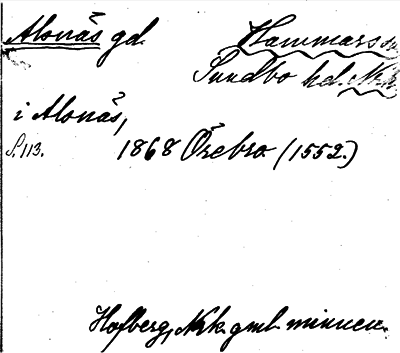 Alonäs gd. Hammars sn
Sundbo hd. Nrk
i Alonäs,
S. 113. 1868 Örebro (1552.)
Hofberg, Nrk. gml. minnen.